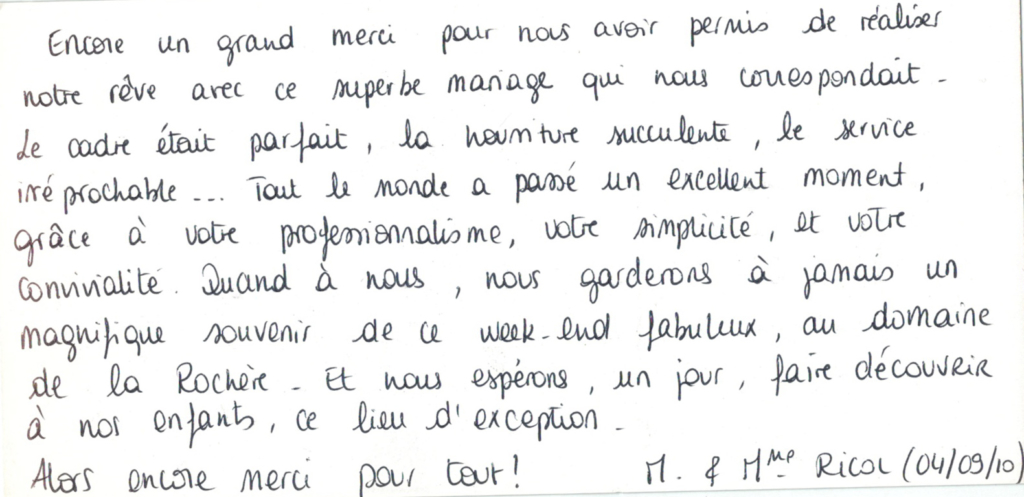 Encore un grand merci pour nous avoir permis de réaliser
notre rêve avec ce superbe mariage qui nous correspondait.
Le cadre était parfait, la nourriture succulente, le service
irréprochable... Tout le monde a passé un excellent moment,
grâce à votre professionnalisme, votre simplicité, et votre
convivialité. Quand à nous, nous garderons à jamais un
magnifique souvenir de ce week-end fabuleux, au domaine
de la Rochère. Et nous espérons, un jour, faire découvrir
à nos enfants, ce lieu d'exception.
Alors encore merci pour tout! M. & Mme Ricol (04/09/10)